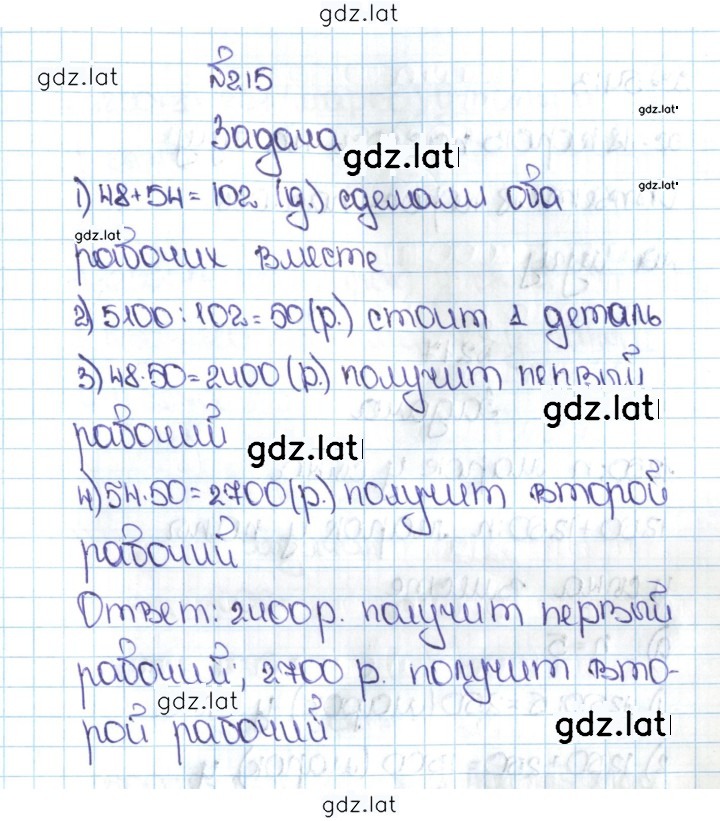 gdz.lat
gdz.lat
№215
gdz.lat
Задача
gdz.lat
1) 48+54=102 (д.) сделали оба
gdz.lat
gdz.lat
рабочих вместе
2) 5100:102=50(р.) стоит 1 деталь
3) 48·50=2400(р.) получит первый
gdz.lat
рабочий
gdz.lat
4) 54·50=2700(р.) получит второй
рабочий
Ответ: 2400р. получит первый
рабочий; 2700 р. получит вто-
gdz.lat
рой рабочий
gdz.lat
gdz.lat